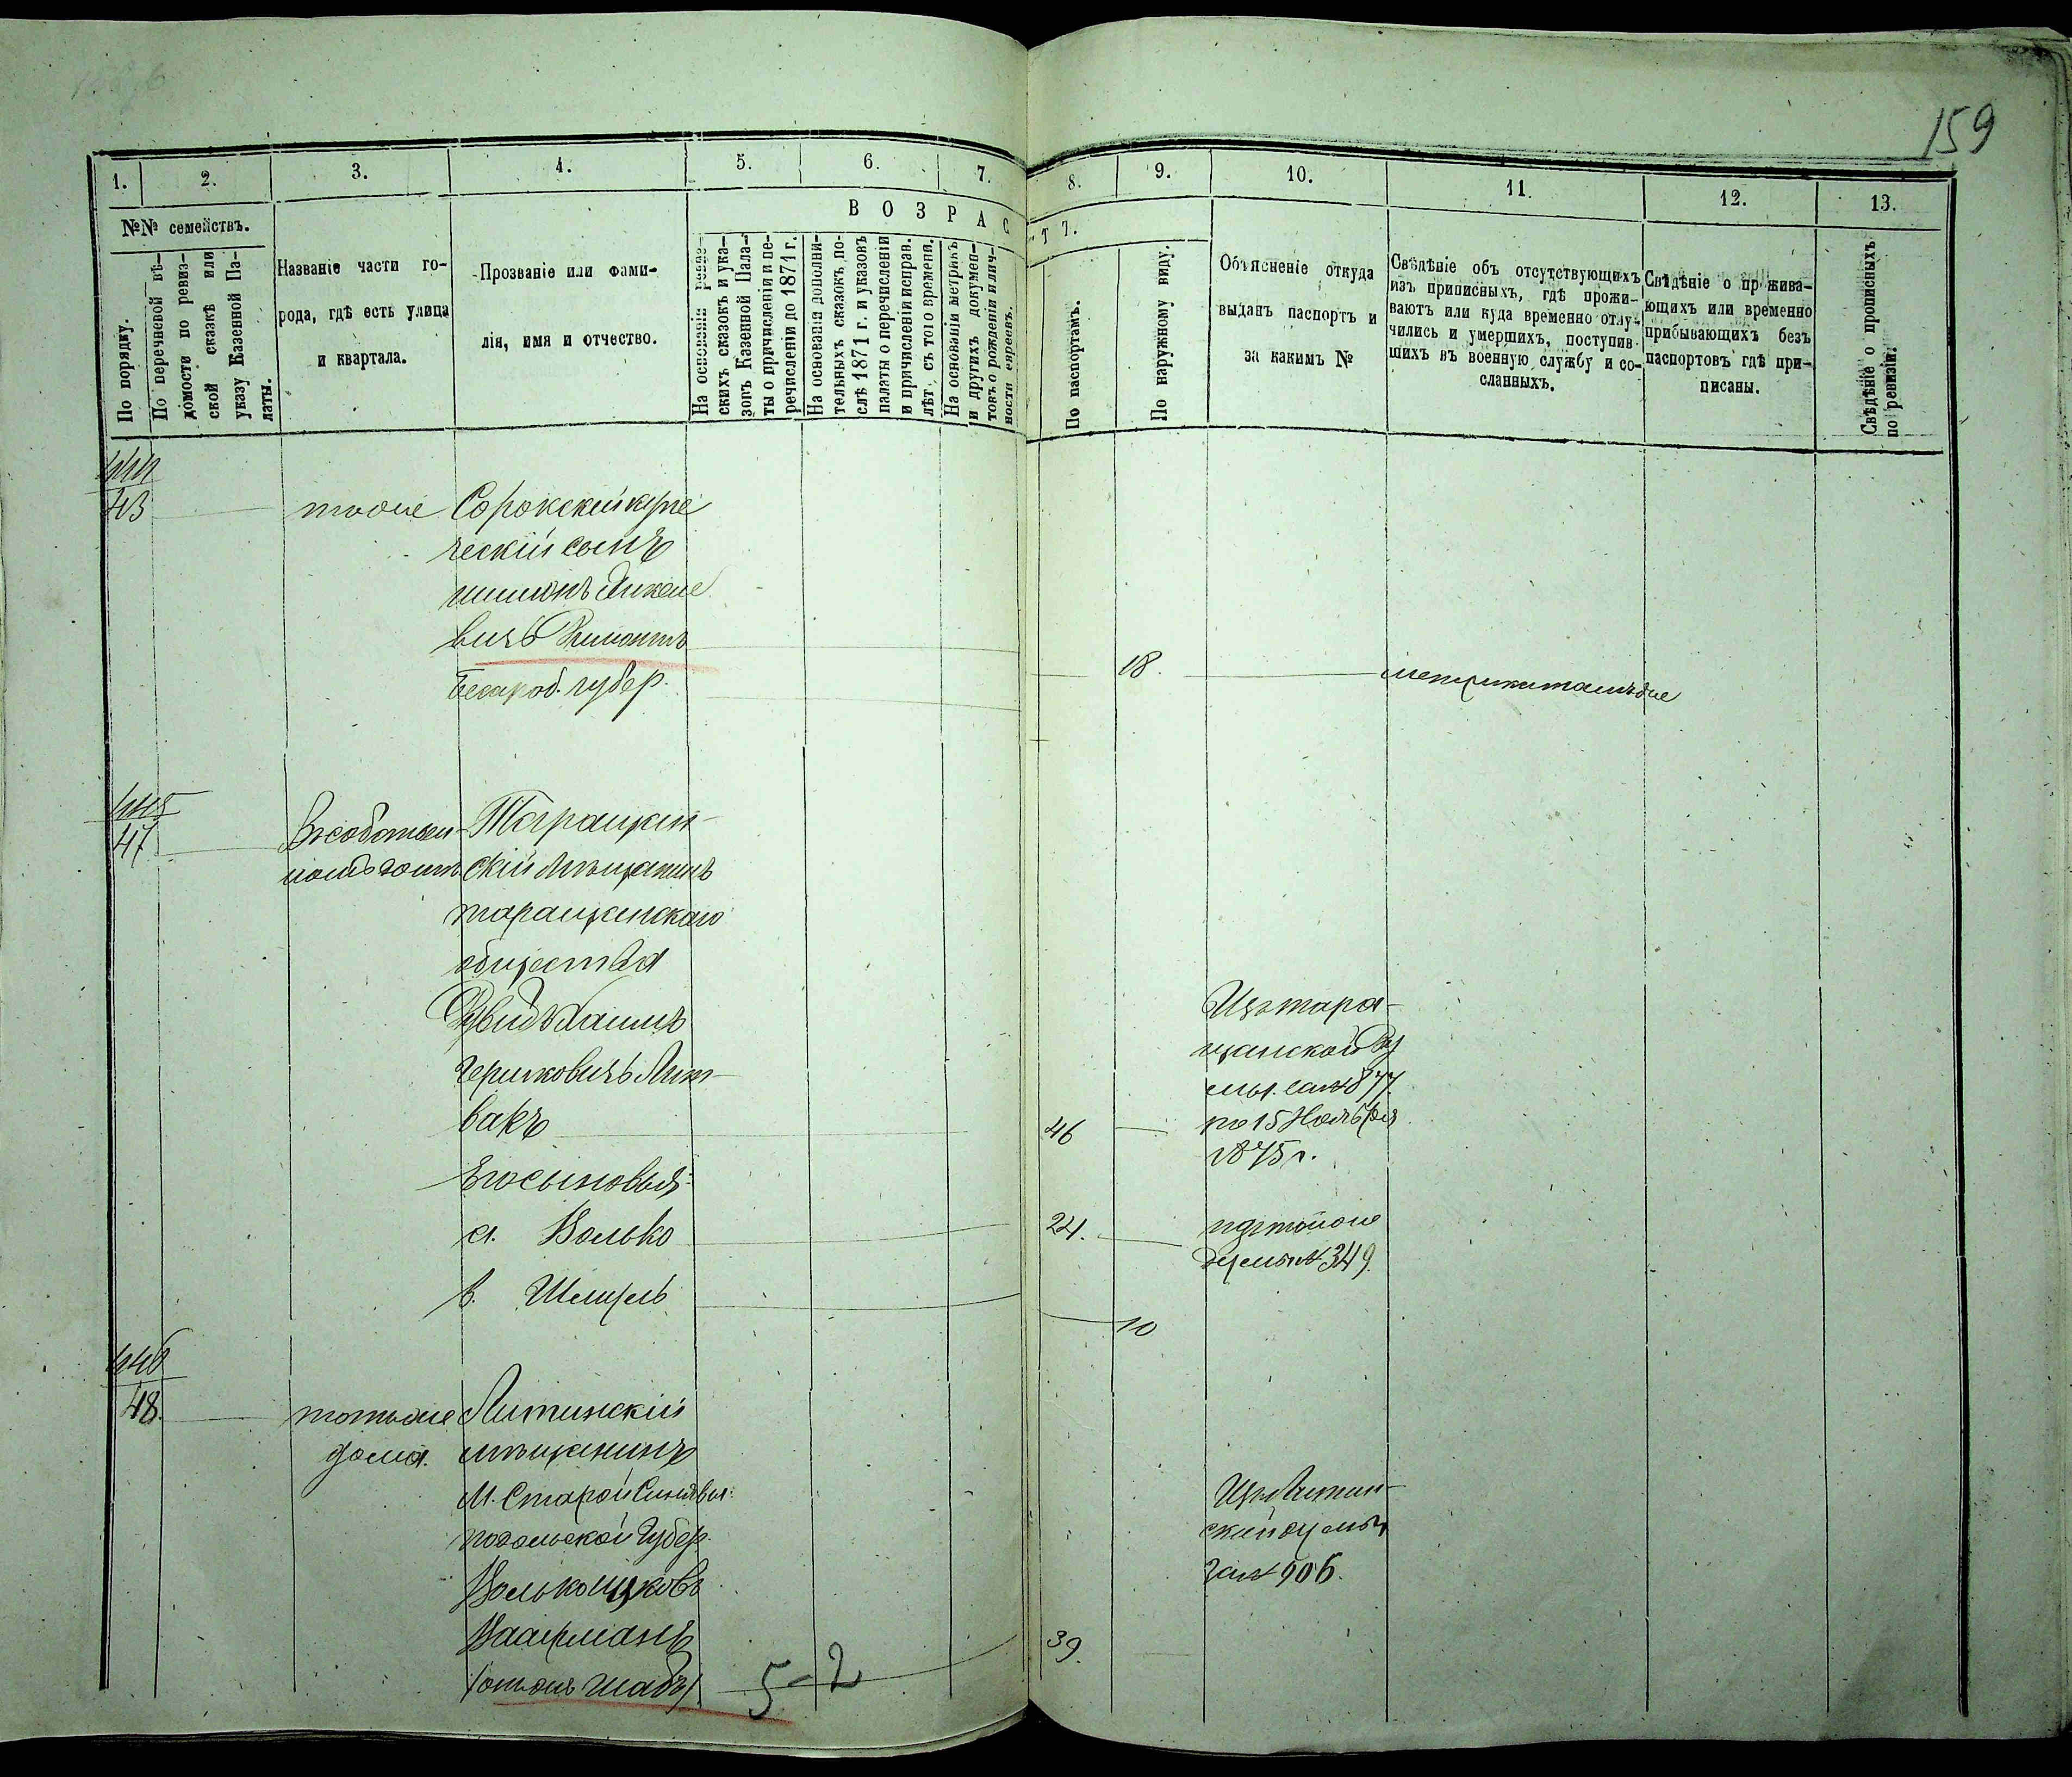 159
1.
2.
3.
4.
5.
6.
7.
8.
9.
10.
11.
12.
13.
№№ семействъ.
По порядку.
По перечневой вѣ-
домости по ревиз-
ской сказкѣ или
указу Казенной Па-
латы.
Названіе части го-
рода, гдѣ есть улица
и квартала.
Прозваніе или фами-
лія, имя и отчество.
ВОЗРАСТЪ.
На основаніи ревиз-
скихъ сказокъ и ука-
зовъ Казенной Пала-
ты о причисленіи и пе-
речисленіи до 1871 г.
На основаніи дополни-
тельныхъ сказокъ по-
слѣ 1871 г. и указовъ
палаты о перечисленіи
и причисленіи исправ.
лѣтъ съ того времени.
На основаніи метрикъ
и другихъ докумен-
товъ о рожденіи и лич-
ности евреевъ.
По паспортамъ.
По наружному виду.
Объясненіе откуда
выданъ паспортъ и
за какимъ №
Свѣдѣніе объ отсутствующихъ
изъ приписныхъ, гдѣ прожи-
ваютъ или куда временно отлу-
чились и умершихъ, поступив-
шихъ въ военную службу и со-
сланныхъ.
Свѣдѣніе о прожива-
ющихъ или временно
прибывающихъ безъ
паспортовъ гдѣ при-
писаны.
Свѣдѣніе о прописныхъ
по ревизіи.
444
43
тоже
Сорокскій купе
ческій сынъ
вичъ
Бесараб. губер.
18.
445
47
Таращан-
скій мѣщанинъ
таращанскаго
общества
Дувидъ Хаимъ
Гершковичъ Лит-
вакъ
46
Изъ тара-
щанской Ду
мы. за № 877.
по 15 Ноября
1875 г.
Его сыновья:
а. Волько
24.
Думы № 349.
в. Шмуль
10
446
48.
дома.
Литинскій
мѣщанинъ
М. Старой Синявы
подольской Губер.
Волько Ицковъ
Ваайманъ
39.
Изъ Литин-
ской думы
за № 906.
5-2